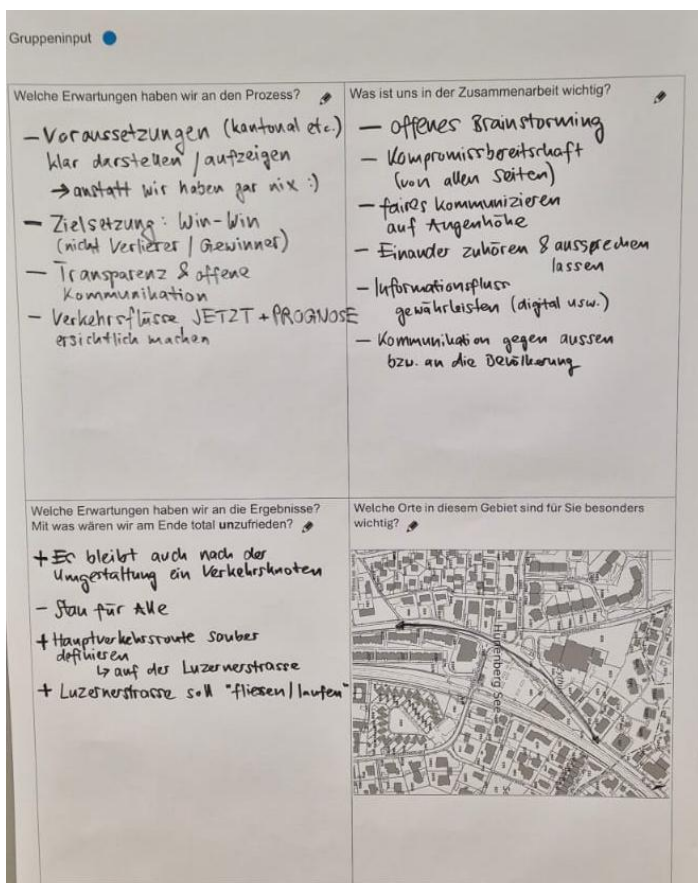 Gruppeninput
Welche Erwartungen haben wir an den Prozess?
– Voraussetzungen (kantonal etc.)
klar darstellen / aufzeigen
→ anstatt wir haben gar nix :)
– Zielsetzung: Win-Win
(nicht Verlierer / Gewinner)
– Transparenz & offene
Kommunikation
– Verkehrsflüsse JETZT + PROGNOSE
ersichtlich machen
Was ist uns in der Zusammenarbeit wichtig?
– offenes Brainstorming
– Kompromissbereitschaft
(von allen Seiten)
– faires kommunizieren
auf Augenhöhe
– Einander zuhören & aussprechen
lassen
– Informationsfluss
gewährleisten (digital usw.)
– Kommunikation gegen aussen
bzw. an die Bevölkerung
Welche Erwartungen haben wir an die Ergebnisse?
Mit was wären wir am Ende total unzufrieden?
+ Es bleibt auch nach der
Umgestaltung ein Verkehrsknoten
– Stau für Alle
+ Hauptverkehrsroute sauber
definieren
↳ auf der Luzernerstrasse
+ Luzernerstrasse soll "fliesen/laufen"
Welche Orte in diesem Gebiet sind für Sie besonders
wichtig?